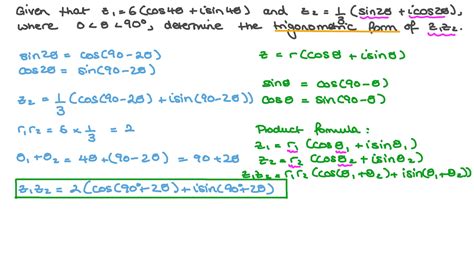 Given that z₁=6(cos4θ+isin4θ) and z₂=1/3(sin2θ+icos2θ),
where 0<θ<90°, determine the trigonometric form of z₁z₂.
sin2θ = cos(90-2θ)
cos2θ = sin(90-2θ)
z₂ = 1/3(cos(90-2θ)+isin(90-2θ))
r₁r₂ = 6 × 1/3 = 2
θ₁+θ₂ = 4θ+(90-2θ) = 90+2θ
z₁z₂ = 2(cos(90°+2θ)+isin(90°+2θ))
z = r(cosθ+isinθ)
sinθ = cos(90-θ)
cosθ = sin(90-θ)
Product formula:
z₁ = r₁(cosθ₁+isinθ₁)
z₂ = r₂(cosθ₂+isinθ₂)
z₁z₂ = r₁r₂(cos(θ₁+θ₂)+isin(θ₁+θ₂))